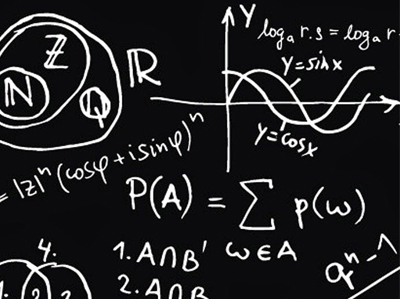 ℤ
ℕ
ℚ
ℝ
Y
logₐ r.s = logₐ r
y=sinx
y=cosx
= |z|ⁿ (cosφ+isinφ)ⁿ
P(A) = ∑ p(ω)
ω∈A
4.
1. A∩B'
2. A∩B
qⁿ-1